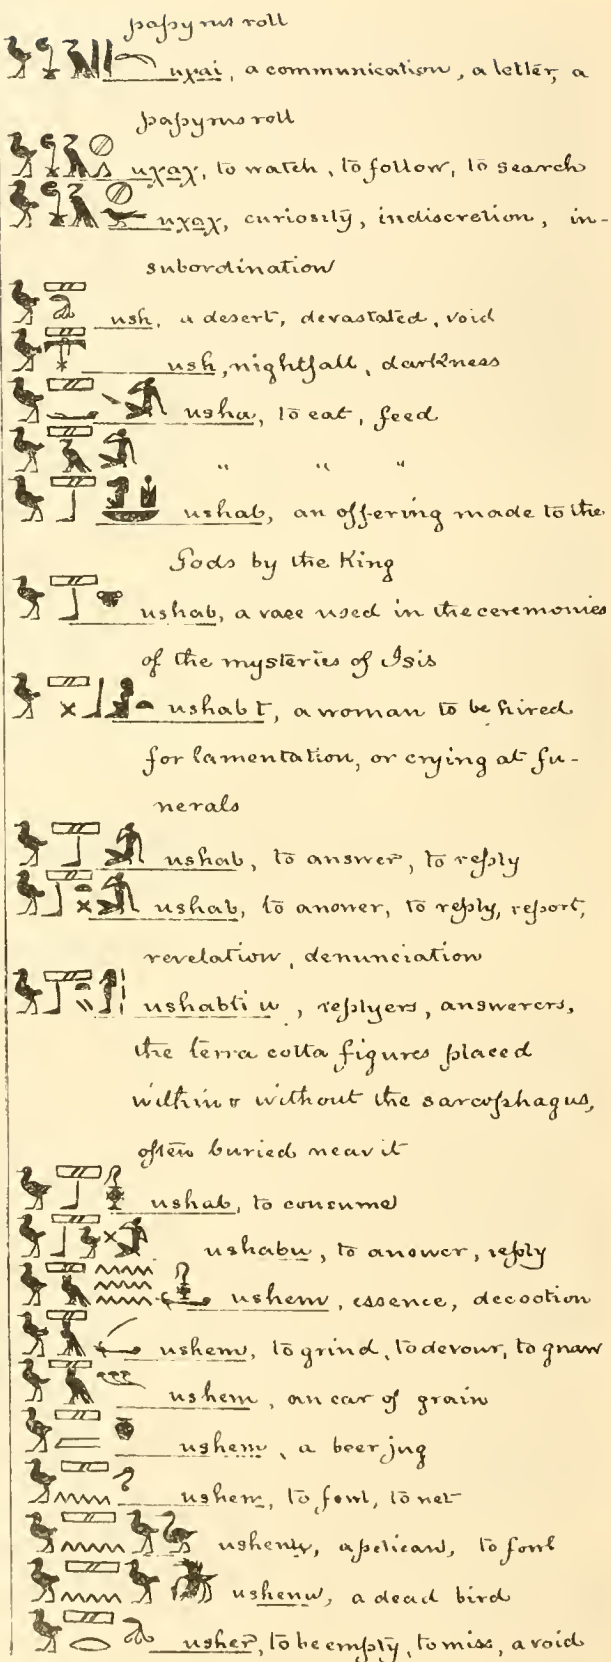 papyrus roll
uχai, a communication, a letter, a
papyrus roll
uχaχ, to watch, to follow, to search
uχaχ, curiosity, indiscretion, in-
subordination
ush, a desert, devastated, void
ush, nightfall, darkness
usha, to eat, feed
" " "
ushab, an offering made to the
Gods by the King
ushab, a vase used in the ceremonies
of the mysteries of Isis
ushabt, a woman to be hired
for lamentation, or crying at fu-
nerals
ushab, to answer, to reply
ushab, to answer, to reply, report,
revelation, denunciation
ushabti u, replyers, answerers,
the terra cotta figures placed
within & without the sarcophagus,
often buried near it
ushab, to consume
ushabu, to answer, reply
ushem, essence, decoction
ushem, to grind, to devour, to gnaw
ushem, an ear of grain
ushem, a beer jug
ushen, to fowl, to net
ushenu, a pelican, to fowl
ushenu, a dead bird
usher, to be empty, to miss, a void